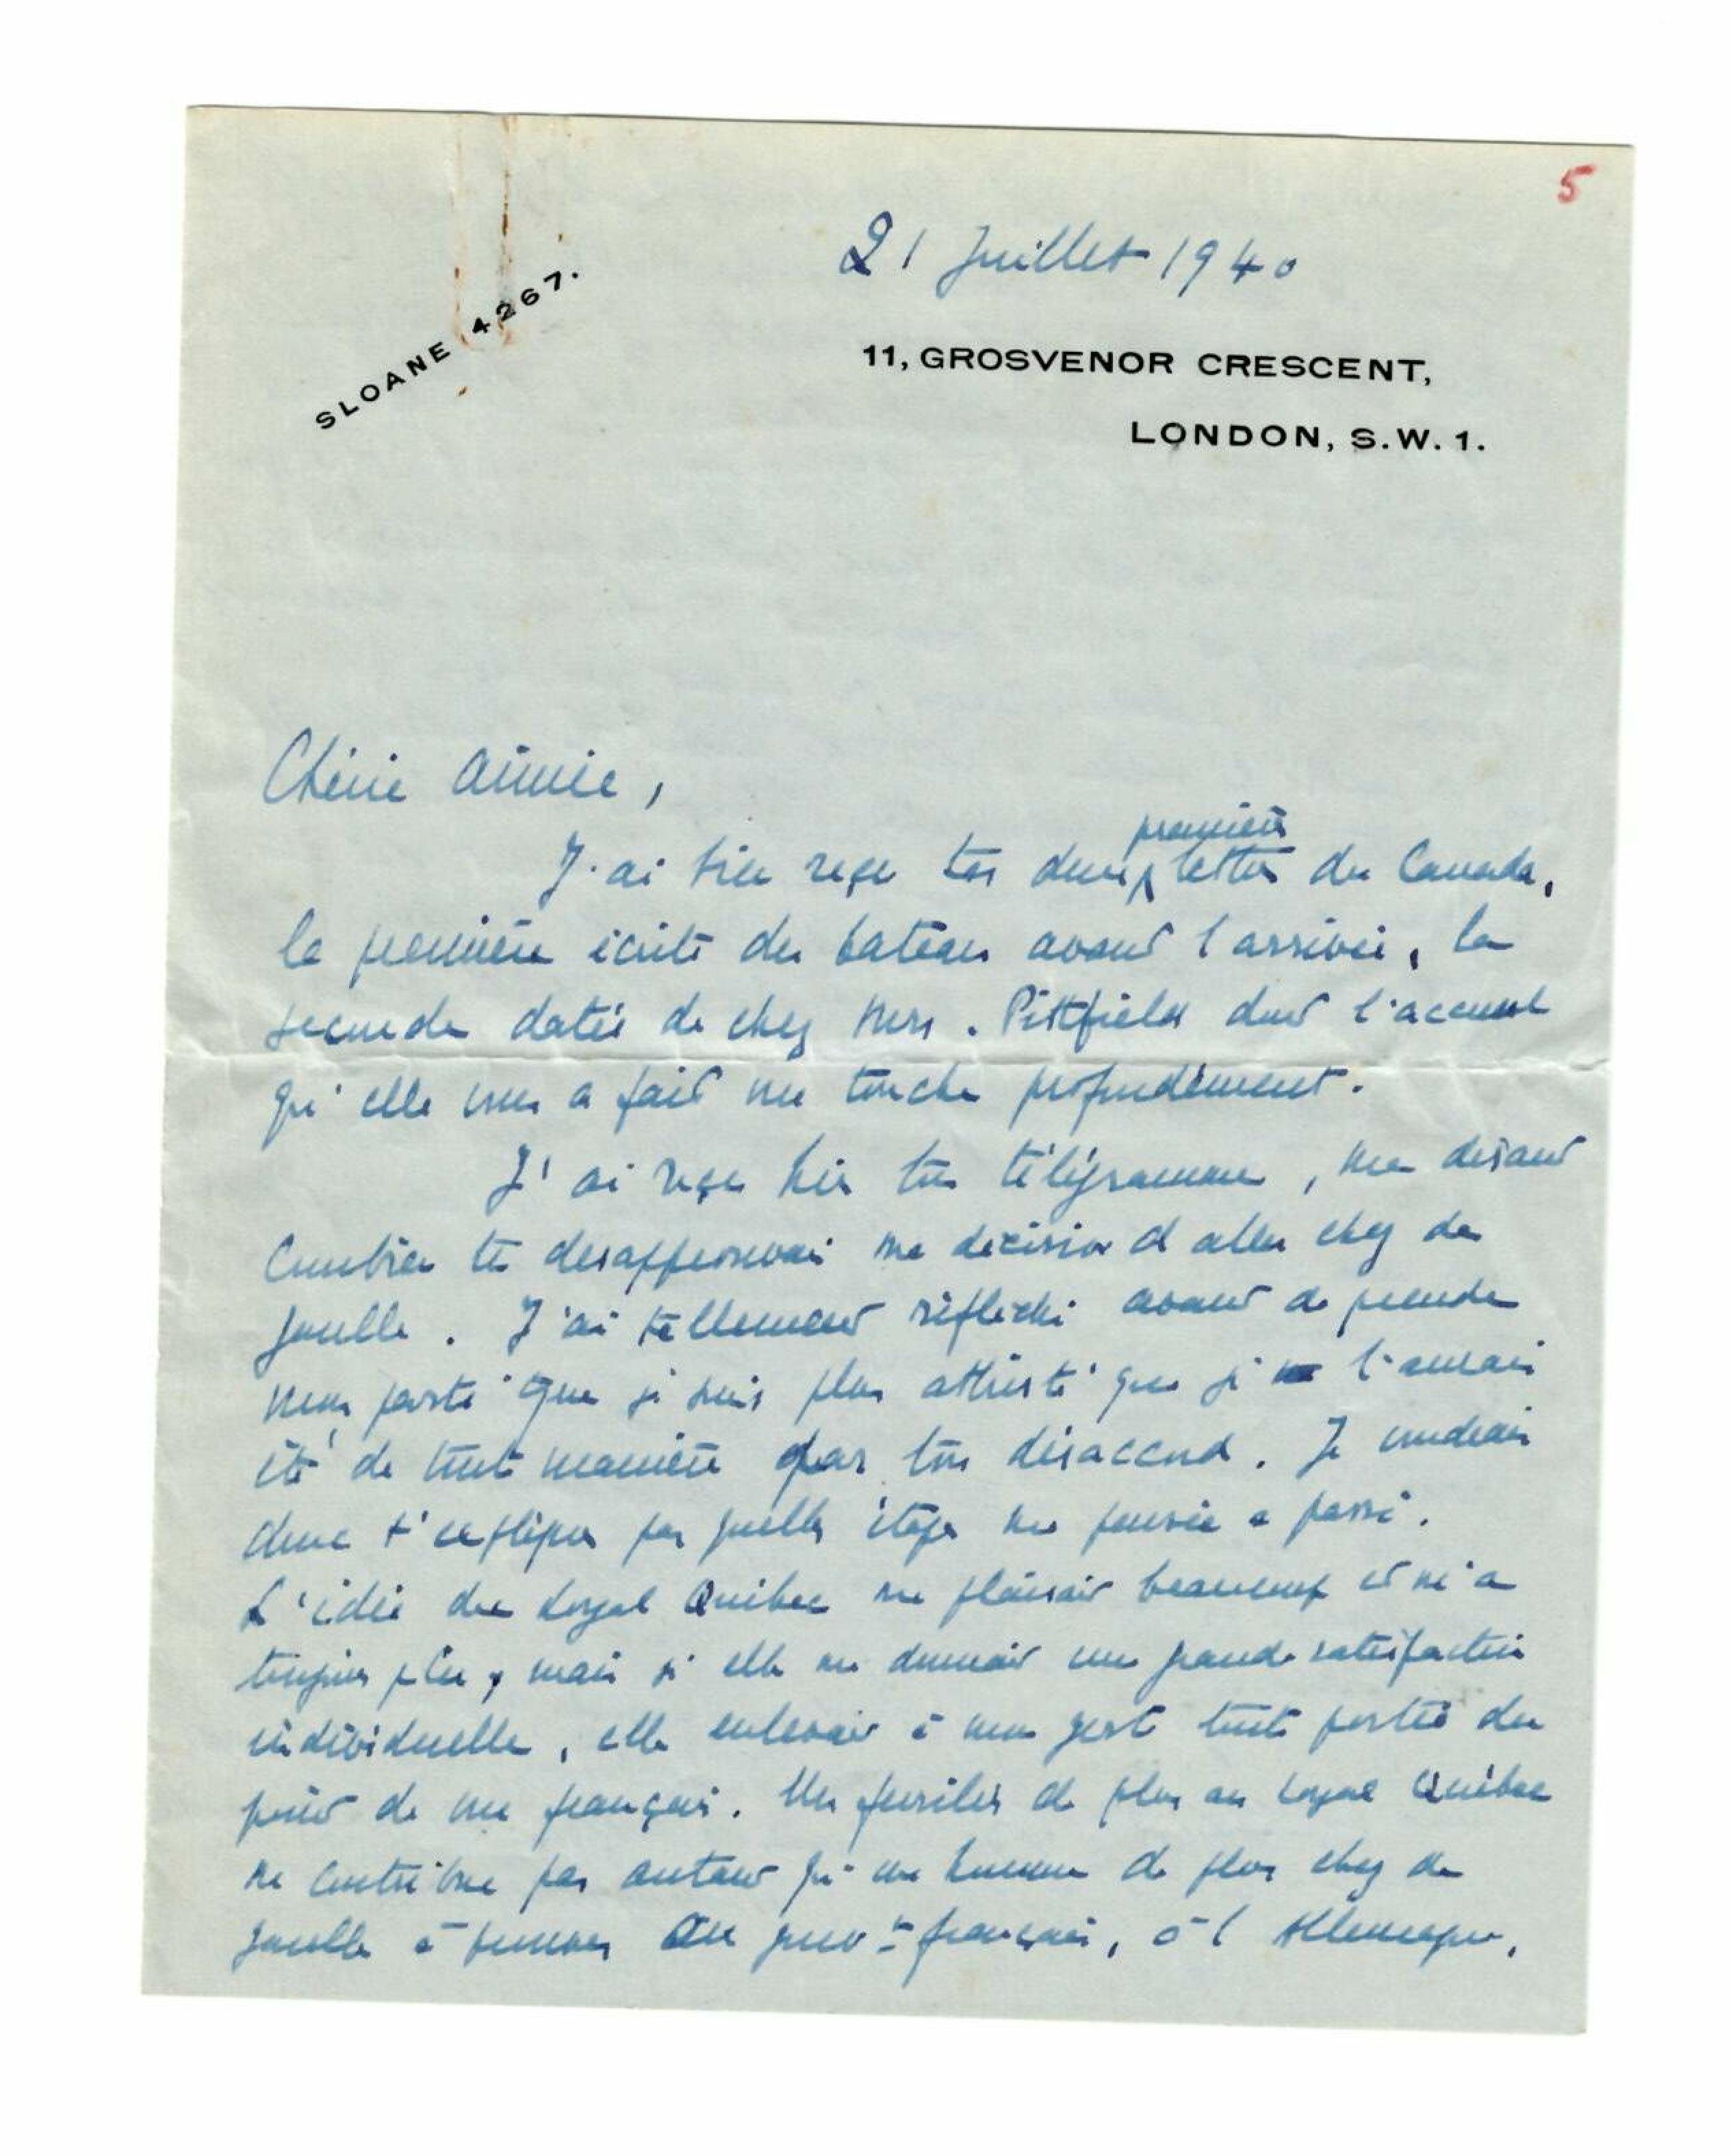 5
21 Juillet 1940
SLOANE 4267.
11, GROSVENOR CRESCENT,
LONDON, S.W. 1.
Chérie aimée,
première
J'ai bien reçu tes deux lettres du Canada,
la première écrite du bateau avant l'arrivée, la
seconde datée de chez Mrs. Pittfield dont l'accueil
qu'elle vous a fait me touche profondément.
J'ai reçu hier ton télégramme, me disant
combien tu desapprouvais ma décision d'aller chez de
Gaulle. J'ai tellement réfléchi avant de prendre
mon parti que je suis plus attristé que je l'aurais
été de toute manière par ton désaccord. Je voudrais
donc t'expliquer par quelles étapes ma pensée a passé.
L'idée du Loyal Québec me plaisait beaucoup et m'a
toujours plu, mais si elle me donnait une grande satisfaction
individuelle, elle enlevait à mon geste toute portée du
point de vue français. Un fusilier de plus au Loyal Québec
ne contribue pas autant qu'un homme de plus chez de
Gaulle à prouver au gouvt français, à l'Allemagne,